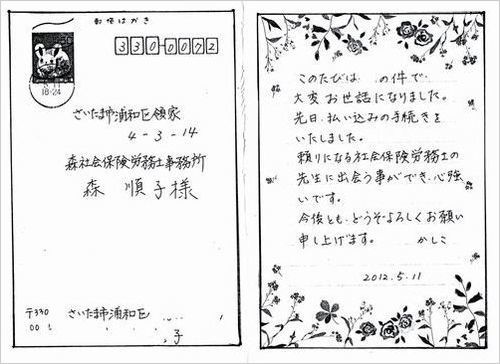 郵便はがき
330-0072
18-24
さいたま市浦和区領家
4-3-14
森社会保険労務士事務所
森 順子様
〒330
さいたま市浦和区
子
このたびは の件で、
大変お世話になりました。
先日、払い込みの手続きを
いたしました。
頼りになる社会保険労務士の
先生に出会う事ができ、心強
いです。
今後とも、どうぞよろしくお願い
申し上げます。 かしこ
2012.5.11